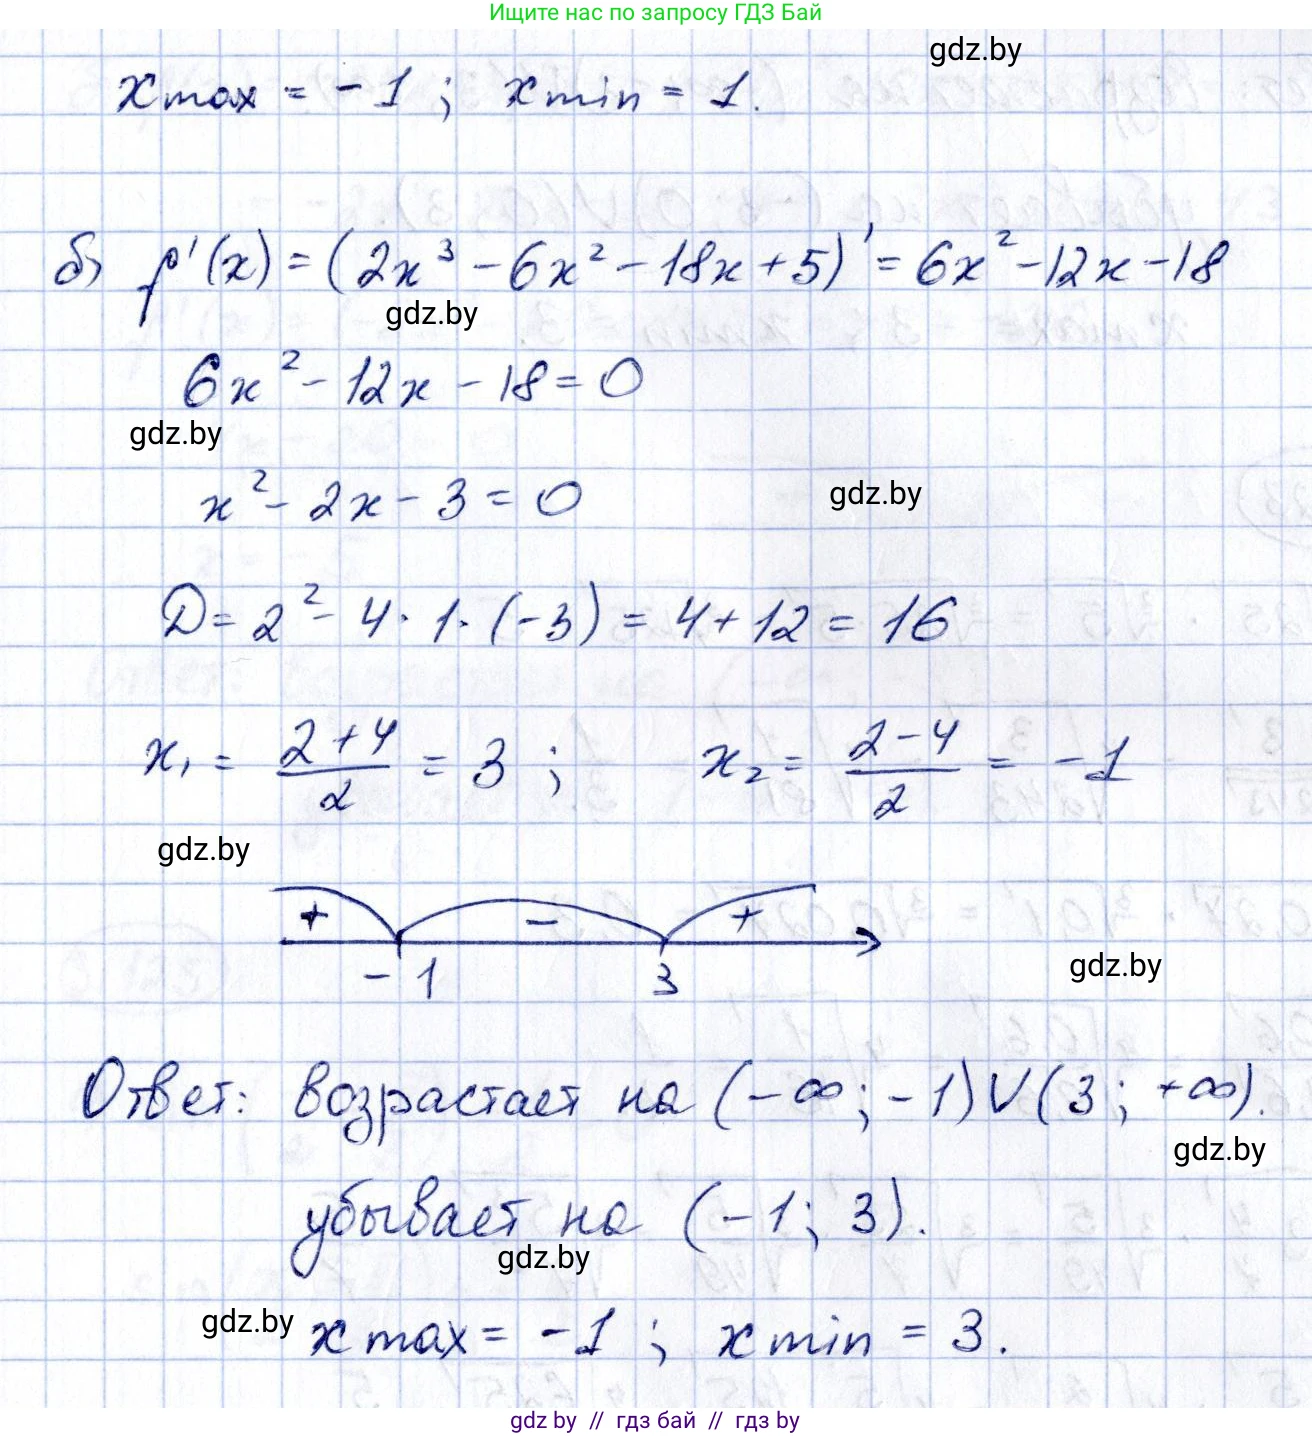 Ищите нас по запросу ГДЗ Бай
gdz.by
x max = -1 ; x min = 1.
б) f'(x) = (2x³ - 6x² - 18x + 5)' = 6x² - 12x - 18
gdz.by
6x² - 12x - 18 = 0
gdz.by
x² - 2x - 3 = 0
gdz.by
D = 2² - 4 · 1 · (-3) = 4 + 12 = 16
x₁ = (2 + 4)/2 = 3 ; x₂ = (2 - 4)/2 = -1
gdz.by
+ - +
-1 3
gdz.by
Ответ: возрастает на (-∞; -1) ∪ (3; +∞).
gdz.by
убывает на (-1; 3).
gdz.by
gdz.by
x max = -1 ; x min = 3.
gdz by // гдз бай // гдз by